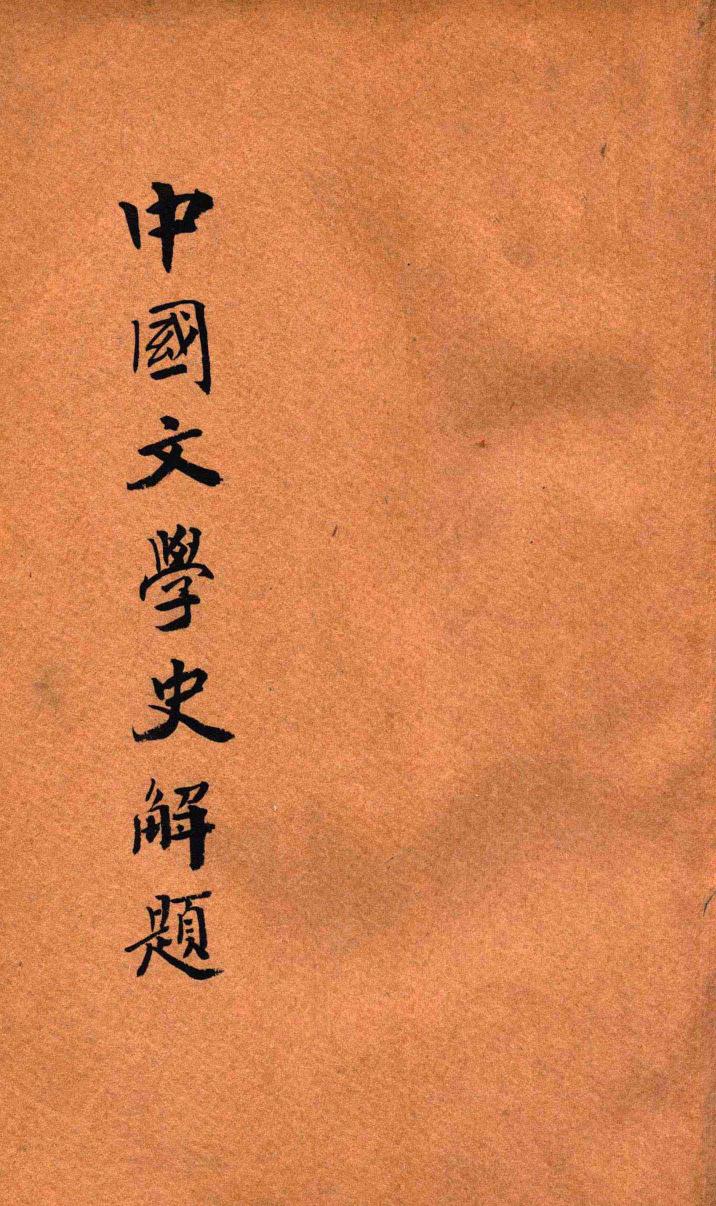 中國文學史解題